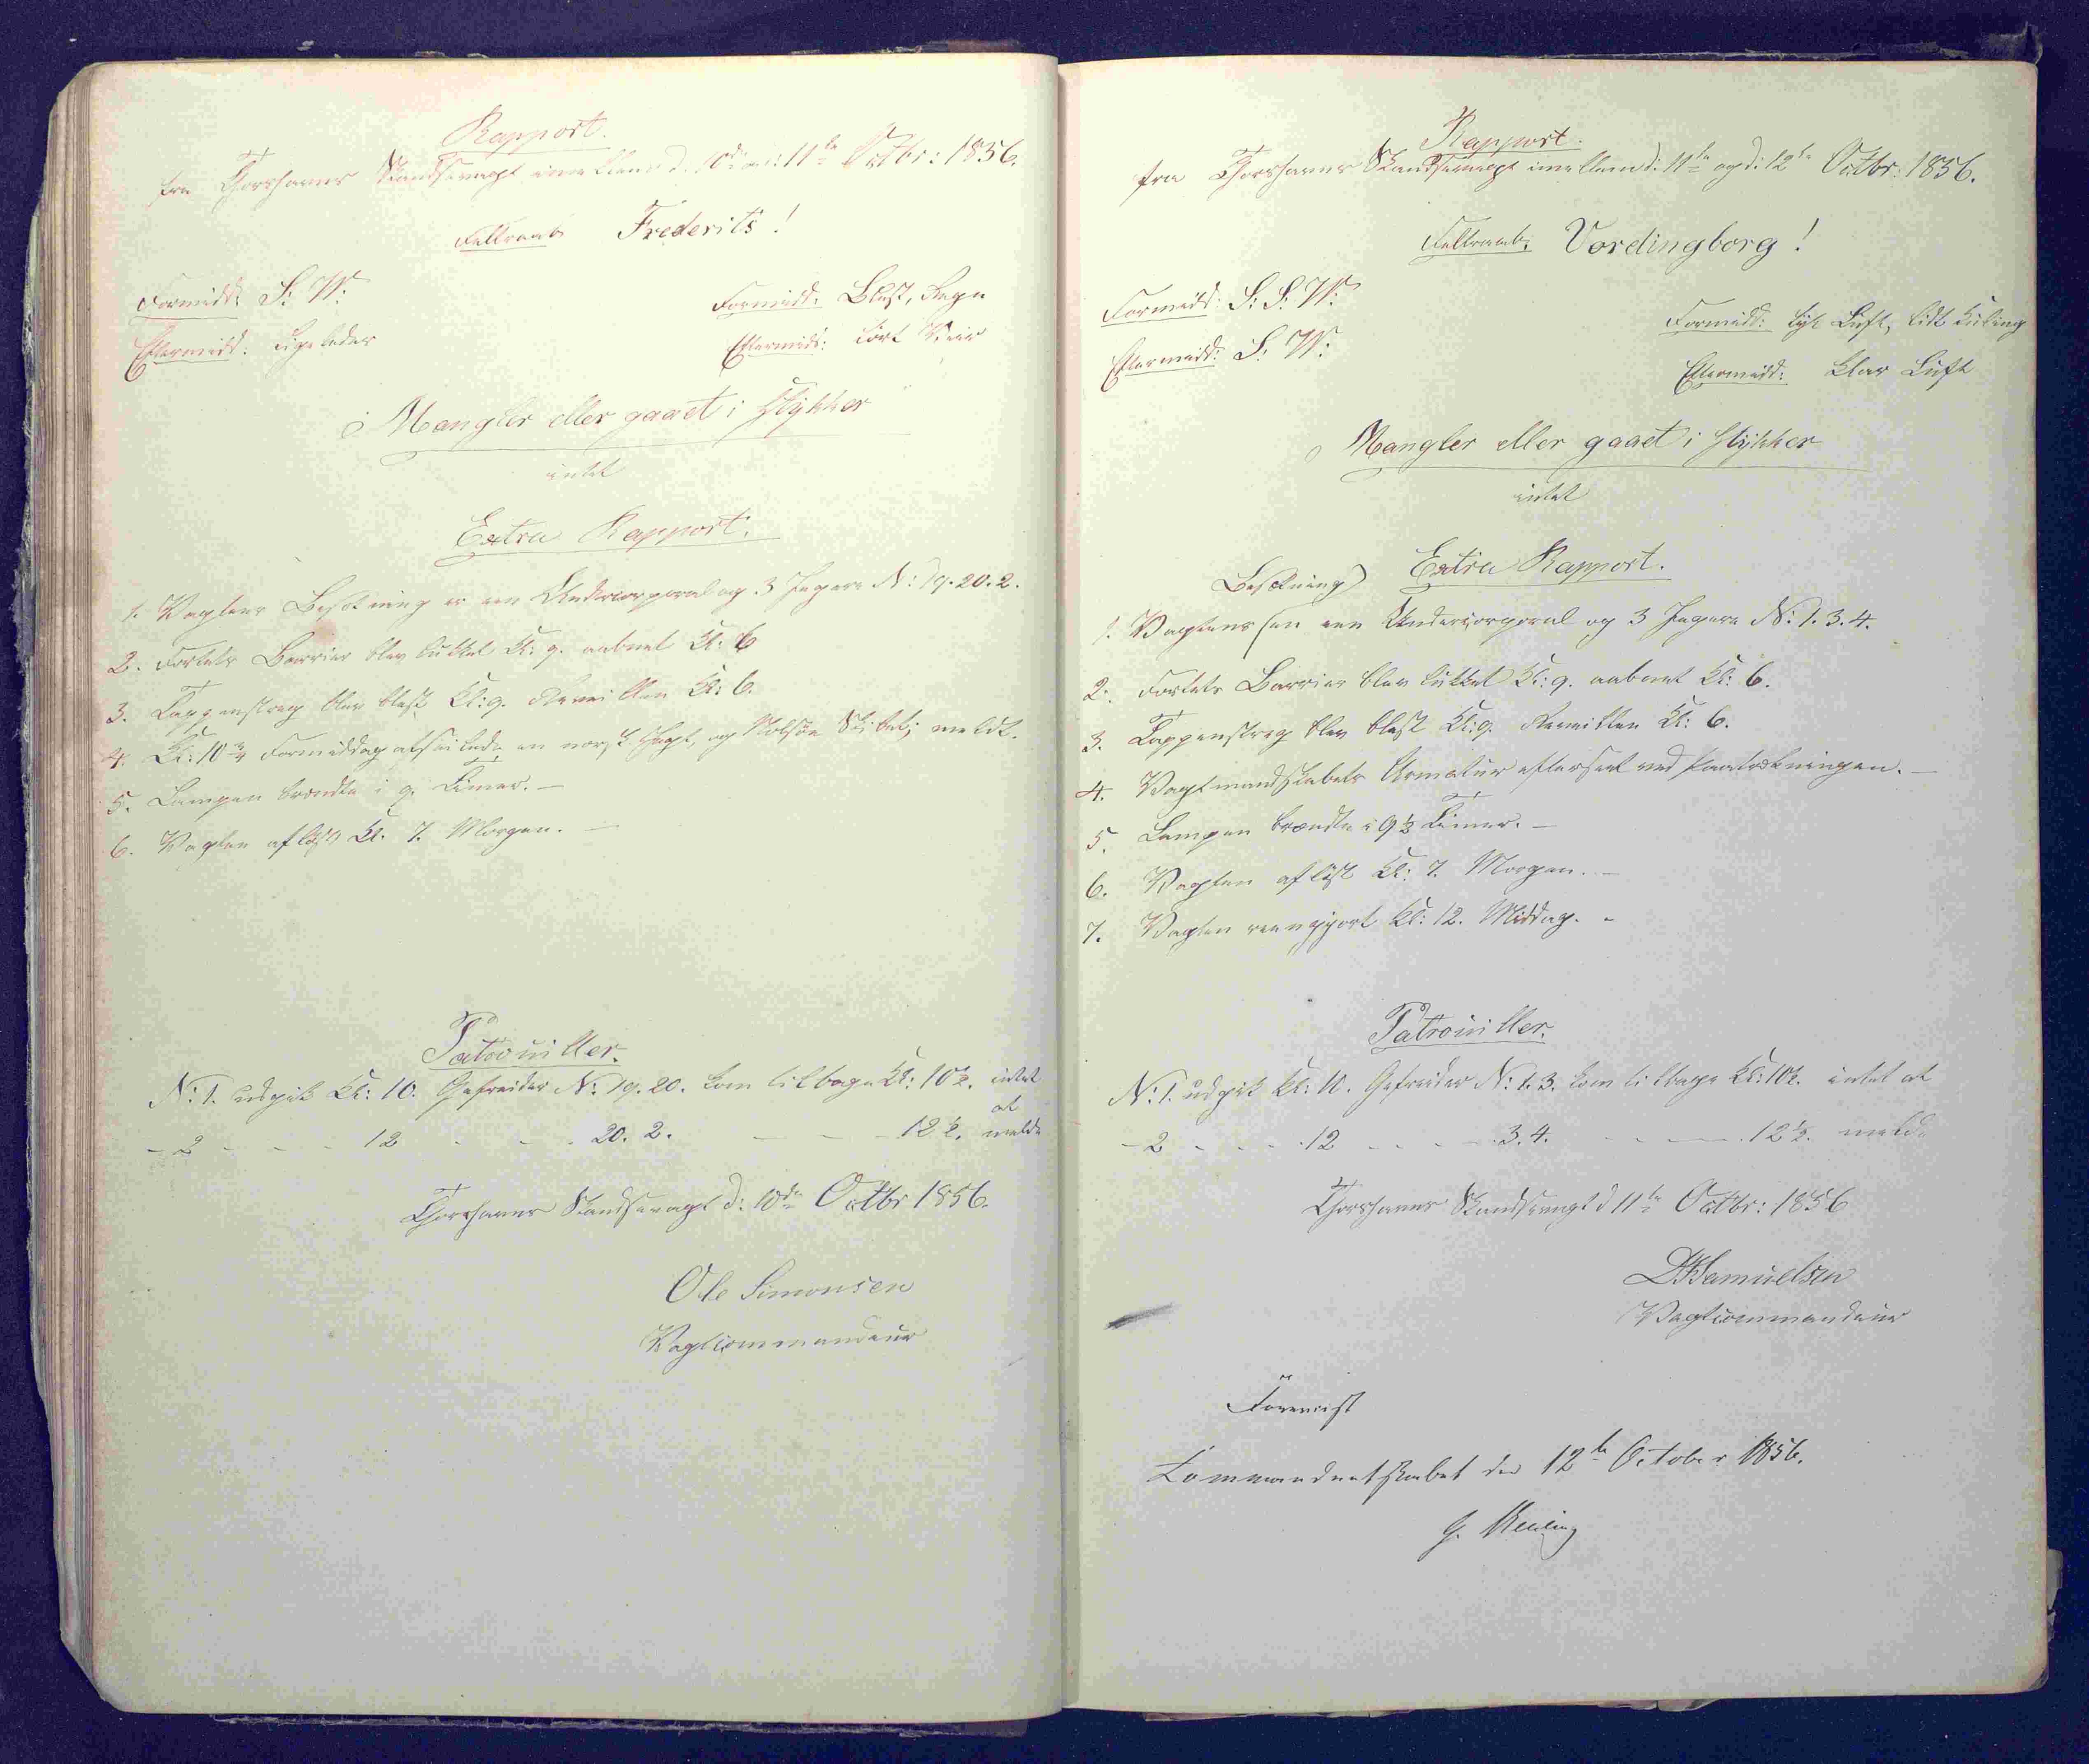 Rapport.
fra Thorshavns Skandsevagt imellem d: 10de og d: 11te Octbr: 1856.
Feltraab Frederits!
Formidd: S: W:
Formidd: Blæst, Regn
Eftermidd: Ligeledes
Eftermidd: tørt Veir
Mangler eller gaaet i Stykker
intet
Extra Rapport.
1. Vagtens Besætning er een Undercorporal og 3 Jægere N: 19. 20. 2.
2. Fortets Barrier blev lukket Kl: 9. aabnet Kl: 6
3. Tappenstreg blev blæst Kl: 9. Reveillen Kl: 6.
4. Kl: 10 3/4 Formiddag afseilede en norsk Jagt, og Nolsøe Skibet; meldt.
5. Lampen brændte i 9 Timer. —
6. Vagten afløst Kl. 7. Morgen. —
Patrouiller.
N: 1. udgik Kl: 10. Gefreider N: 19. 20. kom tilbage Kl: 10½. intet
at
- 2 - - - 12 - - - 20. 2. - - - 12½. melde
Thorshavns Skandsevagt d: 10de Octbr 1856.
Ole Simonsen
Vagtcommandeur
Rapport.
fra Thorshavns Skandsevagt imellem d: 11te og d: 12te Octbr: 1856.
Feltraab: Vordingborg!
Formidd: S: S: W:
Formidd: tyk Luft, lidt Kuling
Eftermidd: S: W:
Eftermidd: klar Luft
Mangler eller gaaet i Stykker
intet
Extra Rapport.
Besætning)
1. Vagtens (er een Undercorporal og 3 Jægere N: 1. 3. 4.
2. Fortets Barrier blev lukket Kl: 9. aabnet Kl: 6.
3. Tappenstreg blev blæst Kl: 9. Reveillen Kl: 6.
4. Vagtmandskabets Armatur efterseet ved Paatrækningen. —
5. Lampen brændte i 9½ Timer. —
6. Vagten afløst Kl: 7. Morgen. —
7. Vagten reengjort Kl: 12. Middag. -
Patrouiller.
N: 1. udgik Kl: 10. Gefreider N: 1. 3. kom tilbage Kl: 10½. intet at
- 2 - - - 12 - - - 3. 4. - - - 12½. melde
Thorshavns Skandsevagt d 11te Octbr: 1856
Samuelsen
Vagtcommandeur
Foreviist
Commandantskabet den 12te October 1856.